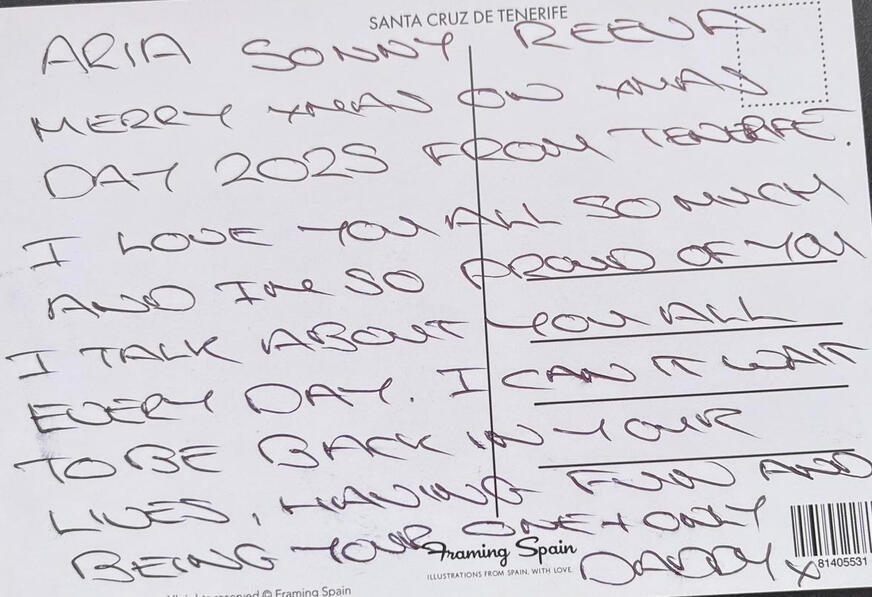 SANTA CRUZ DE TENERIFE
ARIA SONNY REEVA
MERRY XMAS ON XMAS
DAY 2025 FROM TENERIFE.
I LOVE YOU ALL SO MUCH
AND I'M SO PROUD OF YOU
I TALK ABOUT YOU ALL
EVERY DAY. I CAN'T WAIT
TO BE BACK IN YOUR
LIVES, HAVING FUN AND
BEING YOUR ONE + ONLY
DADDY X
Framing Spain
ILLUSTRATIONS FROM SPAIN, WITH LOVE
81405531
All rights reserved © Framing Spain